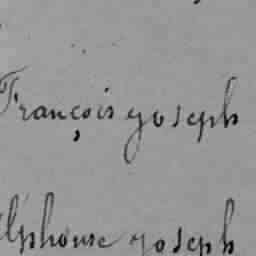 François joseph
alphonse joseph